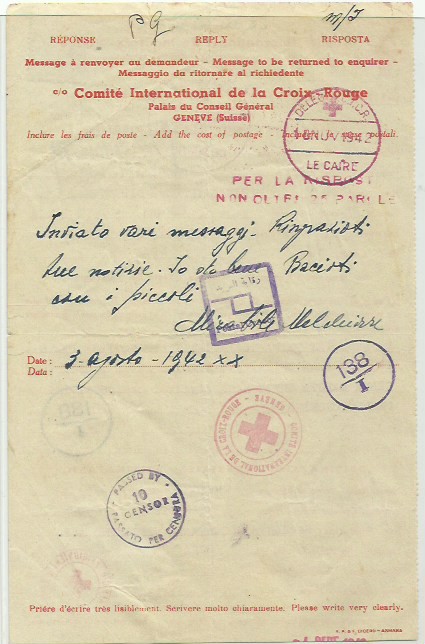 PG
m/J
RÉPONSE REPLY RISPOSTA
Message à renvoyer au demandeur - Message to be returned to enquirer -
Messaggio da ritornare al richiedente
c/o Comité International de la Croix-Rouge
Palais du Conseil Général
GENÈVE (Suisse)
Inclure les frais de poste - Add the cost of postage - le spese postali.
1942
LE CAIRE
PER LA RISPOST
NON OLTRE 25 PAROLE
Inviato vari messaggi. Ringrazioti
tue notizie. Io sto bene Bacioti
con i piccoli
Date :
Data :
3. agosto - 1942 XX
138
I
138
I
COMITÉ INTERNATIONAL DE LA CROIX-ROUGE - GENÈVE
PASSED BY
10
CENSOR
PASSATO PER CENSURA
Prière d'écrire très lisiblement. Scrivere molto chiaramente. Please write very clearly.